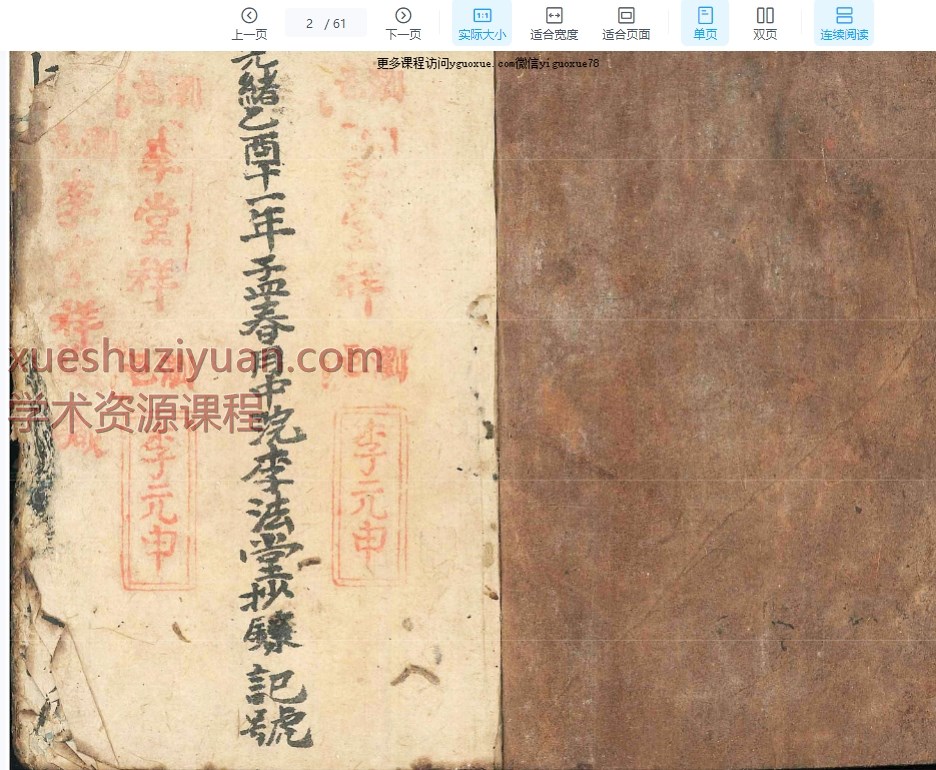 上一页
2 / 61
下一页
实际大小
适合宽度
适合页面
单页
双页
连续阅读
更多课程访问yguoxue.com微信yiguoxue78
光緒乙酉十一年孟春月中院李法堂抄錄 記號
李堂祥
李元申
李元申
xueshuziyuan.com
学术资源课程